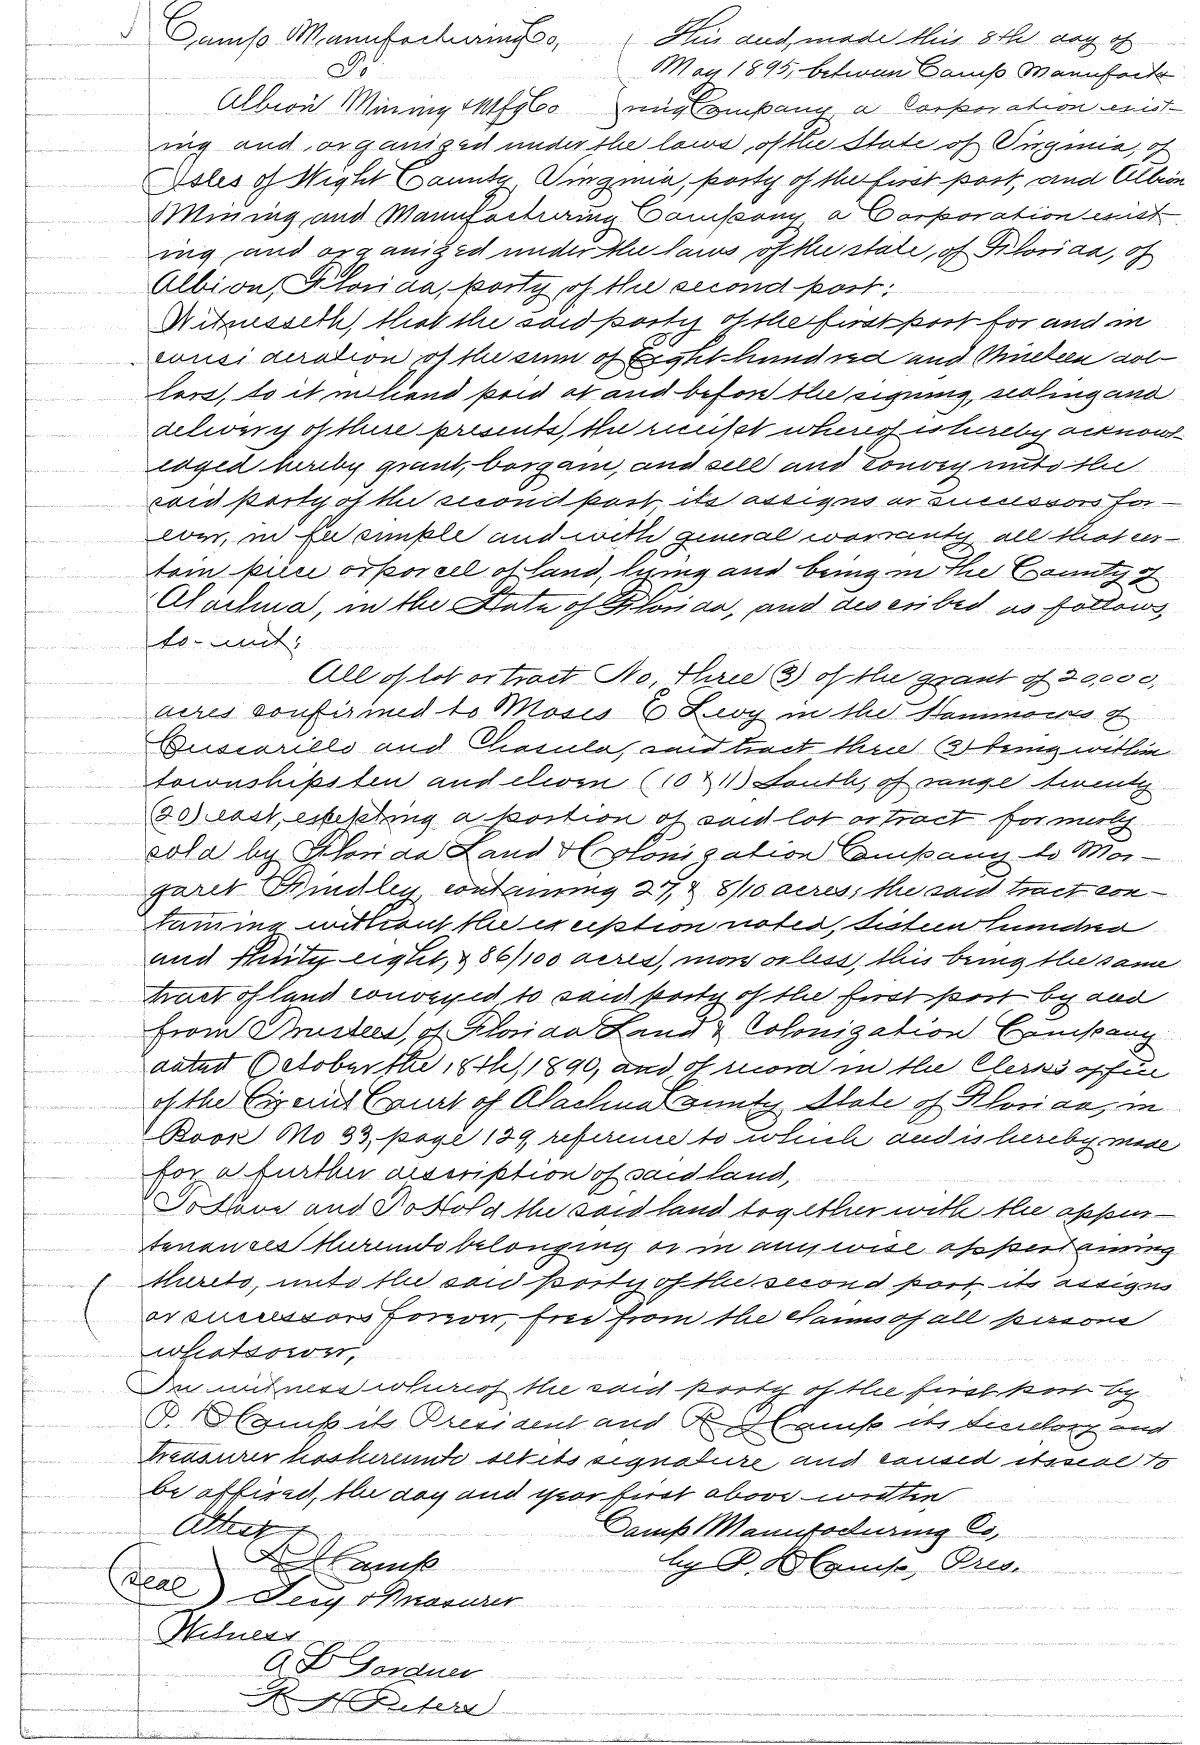 Camp Manufacturing Co, ( This deed, made this 8th day of
To May 1895, between Camp Manufactu
Albion Mining & Mfg Co ) ring Company, a Corporation exist-
ing and organized under the laws of the State of Virginia, of
Isles of Wight County, Virginia, party of the first part, and Albion
Mining and Manufacturing Company, a Corporation exist-
ing and organized under the laws of the state, of Florida, of
Albion, Florida, party of the second part:
Witnesseth, that the said party of the first part for and in
consideration of the sum of Eight hundred and Nineteen dol-
lars, to it in hand paid at and before the signing, sealing and
delivery of these presents, the receipt whereof is hereby acknowl-
edged hereby grant, bargain, and sell and convey unto the
said party of the second part, its assigns or successors for-
ever, in fee simple and with general warranty all that cer-
tain piece or parcel of land, lying and being in the County of
Alachua, in the State of Florida, and described as follows,
to-wit:
All of lot or tract No, three (3) of the grant of 20,000,
acres confirmed to Moses E Levy in the Hammocks of
Cuscarillo and Chasula, said tract three (3) being within
townships ten and eleven (10 & 11) South, of range twenty
(20) east, excepting a portion of said lot or tract formerly
sold by Florida Land & Colonization Company to Mar-
garet Hindley, containing 27, & 8/10 acres; the said tract con-
taining without the exception noted, sixteen hundred
and thirty eight, & 86/100 acres, more or less, this being the same
tract of land conveyed to said party of the first part by deed
from Trustees, of Florida Land & Colonization Company
dated October the 18th, 1890, and of record in the Clerks office
of the Circuit Court of Alachua County State of Florida, in
Book No 33, page 129, reference to which deed is hereby made
for a further description of said land,
To Have and To Hold the said land together with the appur-
tenances thereunto belonging or in anywise appertaining
thereto, unto the said party of the second part, its assigns
or successors forever, free from the claims of all persons
whatsoever,
In witness whereof the said party of the first part by
P. D Camp its President and R J Camp its Secretary and
treasurer has hereunto set its signature and caused its seal to
be affixed, the day and year first above written
Attest Camp Manufacturing Co,
R J Camp by P. D Camp, Pres.
(Seal) Secy & Treasurer
Witness
A B Gardner
R H Peters